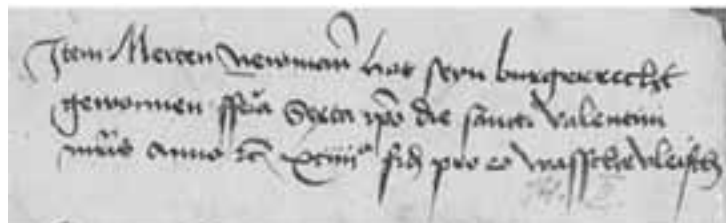 Item Merten newman̄ hat seyn burgerrecht
gewonnen ffr̄ia Sexta ip̄o die sancti valentini
mr̄is anno ꝛc̄ xciiiiº fid pro eo wasschevleisch